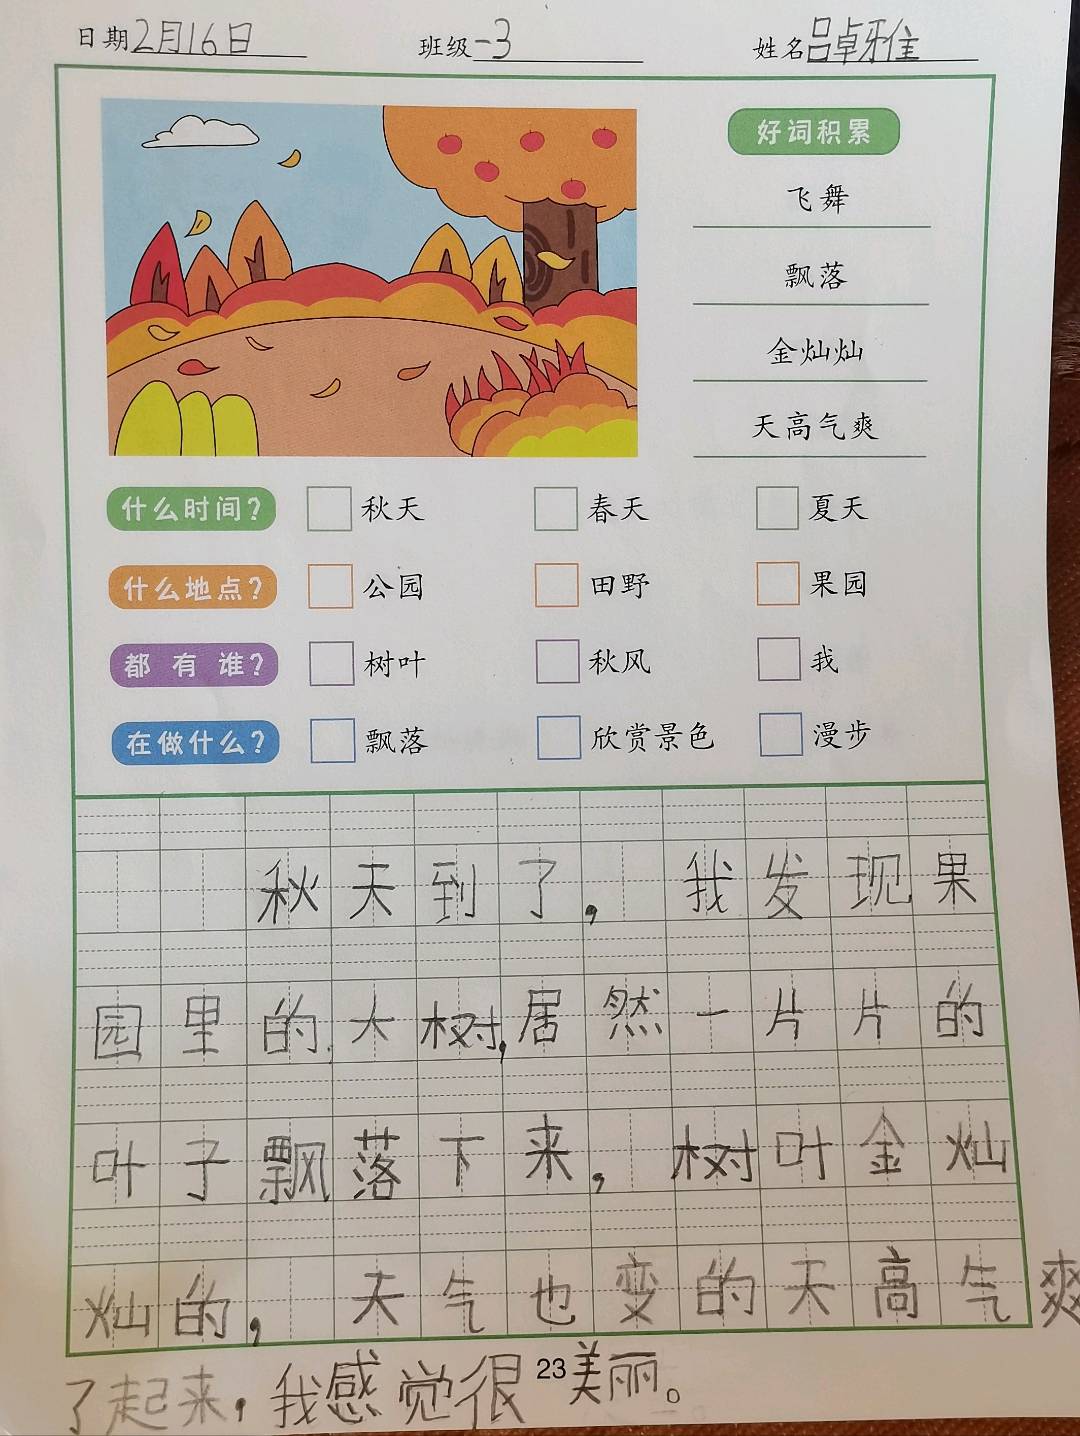 日期2月16日 班级一3 姓名吕卓雅
好词积累
飞舞
飘落
金灿灿
天高气爽
什么时间? 秋天 春天 夏天
什么地点? 公园 田野 果园
都有谁? 树叶 秋风 我
在做什么? 飘落 欣赏景色 漫步
秋天到了，我发现果
园里的大树，居然一片片的
叶子飘落下来，树叶金灿
灿的，天气也变的天高气爽
了起来，我感觉很美丽。
23